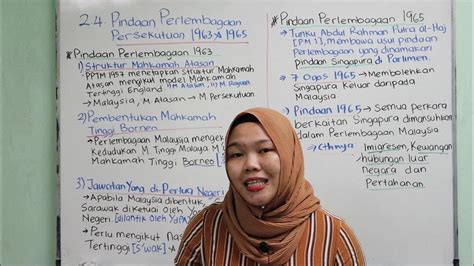 2.4 Pindaan Perlembagaan
Persekutuan 1963 → 1965
*Pindaan Perlembagaan 1963
1) Struktur Mahkamah Atasan
PPTM 1957 menetapkan Struktur Mahkamah
Atasan mengikut model Mahkamah
Tertinggi England.
→ Malaysia, M Atasan, M Persekutuan
2) Pembentukan Mahkamah
Tinggi Borneo
→ Perlembagaan Malaysia
Kedudukan M. Tinggi Malaya
Mahkamah Tinggi Borneo
3) Jawatan Yang di-Pertua Negeri
→ Apabila Malaysia dibentuk,
Sarawak diketuai oleh
Negeri. [dilantik oleh YdPA]
→ Perlu mengikut
Tertinggi [S'wak]
*Pindaan Perlembagaan 1965
→ Tunku Abdul Rahman Putra al-Haj
[PM 1], membawa usul pindaan
Perlembagaan yang dinamakan
pindaan Singapura di Parlimen.
→ 7 Ogos 1965 → Membolehkan
Singapura Keluar daripada
Malaysia
→ Pindaan 1965 → Semua perkara
berkaitan Singapura dimansuhkan
dalam Perlembagaan Malaysia
→ Cthnya Imigresen, Kewangan,
hubungan luar
negara dan
Pertahanan.